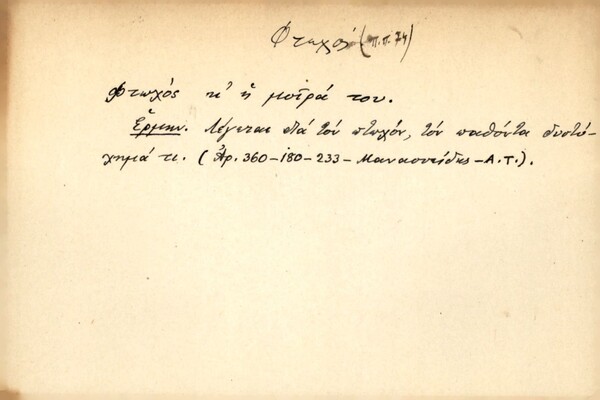 Φτωχός (π.π. 74)
Φτωχός κ' ἡ μοῖρά του.
Ἑρμην. Λέγεται διά τόν πτωχόν, τόν παθόντα δυστύ-
χημά τι. (Ἀρ. 360-180-233- Μανασσείδης - Α.Τ.).